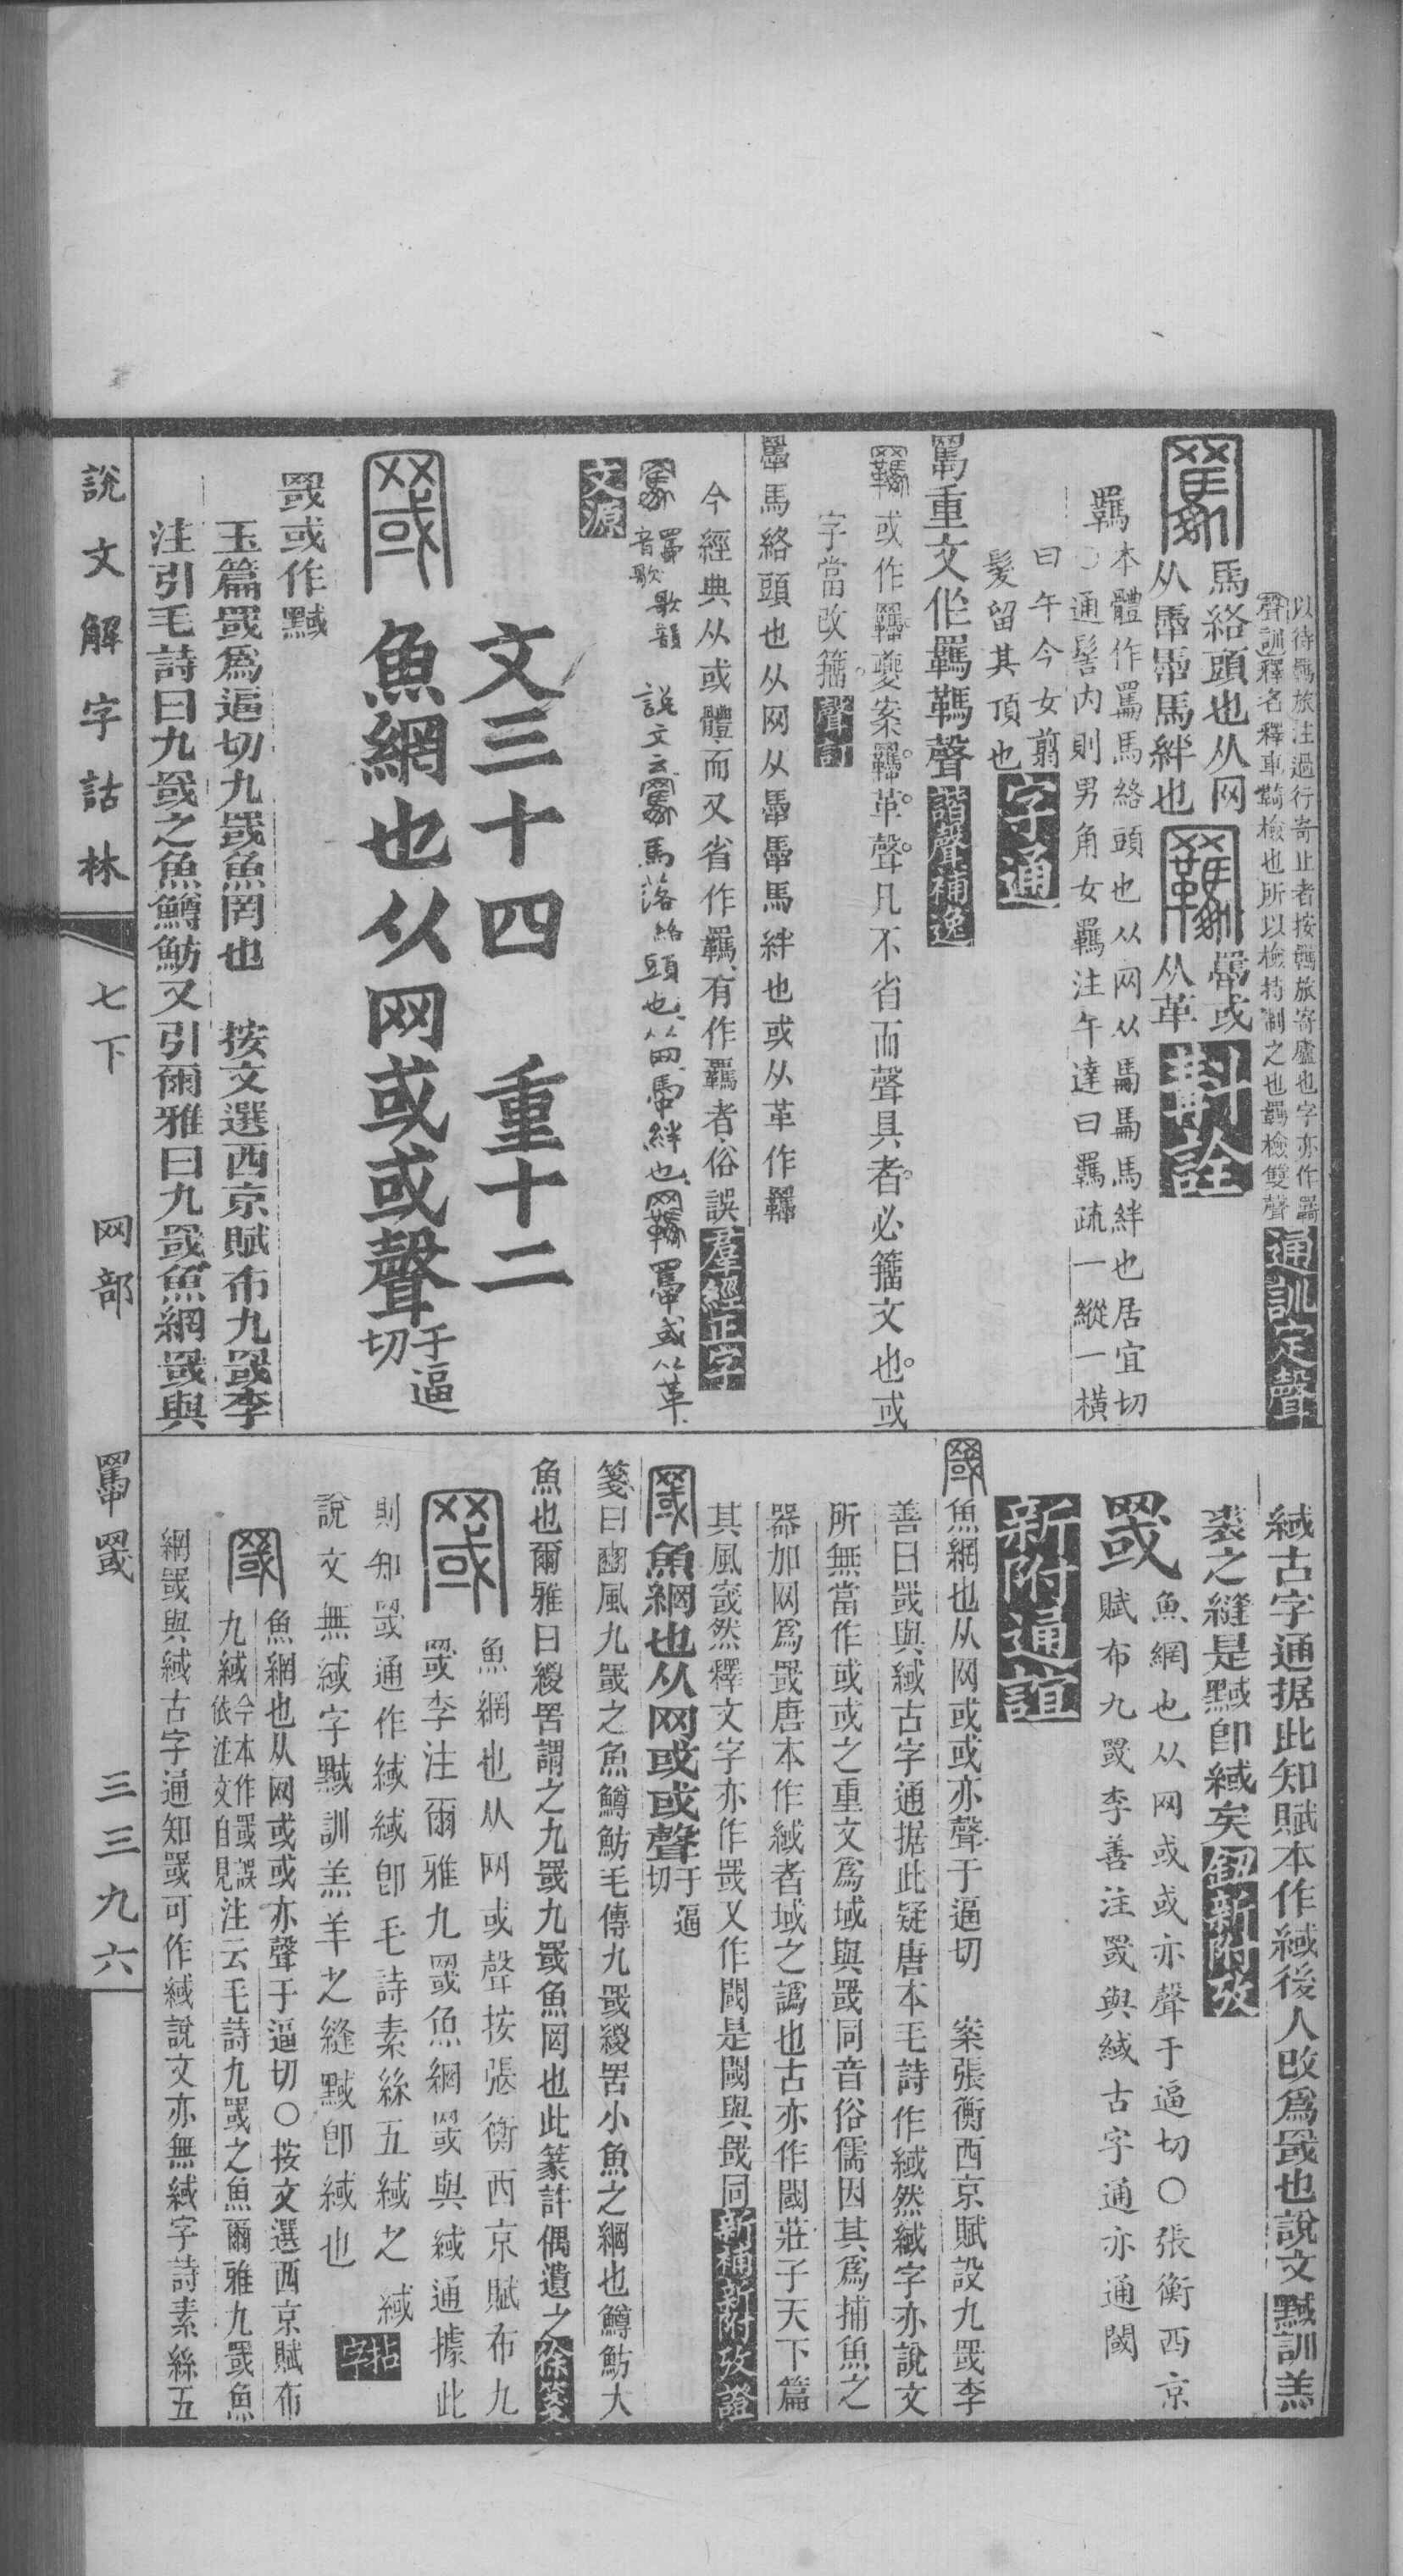 以待羈旅注過行寄止者按羈旅寄廬也字亦作羇
聲訓釋名釋車羈檢也所以檢持制之也羈檢雙聲
通訓定聲
馬絡頭也从网
从馽馽馬絆也
羈或
从革
斠詮
羈
本體作馬絡頭也从网从馬絆也居宜切
○通髻內則男角女羈注午達曰羈疏一縱一橫
曰午今女剪
髮留其頂也
字通
重文作羈聲
諧聲補逸
或作羈夔案羈革聲凡不省而聲具者必籀文也或
字當改籀
馬絡頭也从网从馽馽馬絆也或从革作羈
今經典从或體而又省作羈有作覊者俗誤
羣經正字
音歌
歌韻
說文云馬落絡頭也从网馬絆也羈或从革
文源
文三十四 重十二
魚網也从网或或聲
于逼
切
罭或作黬
玉篇罭爲逼切九罭魚罔也 按文選西京賦布九罭李
注引毛詩曰九罭之魚鱒魴又引爾雅曰九罭魚網罭與
緎古字通据此知賦本作緎後人改爲罭也說文黬訓羔
裘之縫是黬卽緎矣
鈕新附攷
罭
魚網也从网或或亦聲于逼切○張衡西京
賦布九罭李善注罭與緎古字通亦通閾
新附通誼
魚網也从网或或亦聲于逼切 案張衡西京賦設九罭李
善曰罭與緎古字通据此疑唐本毛詩作緎然緎字亦說文
所無當作或或之重文爲域與罭同音俗儒因其爲捕魚之
器加网爲罭唐本作緎者域之譌也古亦作閾莊子天下篇
其風窢然釋文字亦作罭又作閾是閾與罭同
新補新附攷證
魚網也从网或或聲
于逼
切
箋曰豳風九罭之魚鱒魴毛傳九罭緵罟小魚之網也鱒魴大
魚也爾雅曰緵罟謂之九罭九罭魚罔也此篆許偶遺之
徐箋
魚網也从网或聲按張衡西京賦布九
罭李注爾雅九罭魚網罭與緎通據此
則知罭通作緎緎卽毛詩素絲五緎之緎
說文無緎字黬訓羔羊之縫黬卽緎也
拈字
魚網也从网或或亦聲于逼切○按文選西京賦布
九緎
今本作罭誤
依注文自見
注云毛詩九罭之魚爾雅九罭魚
網罭與緎古字通知罭可作緎說文亦無緎字詩素絲五
說文解字詁林
七下
网部
罭
三三九六